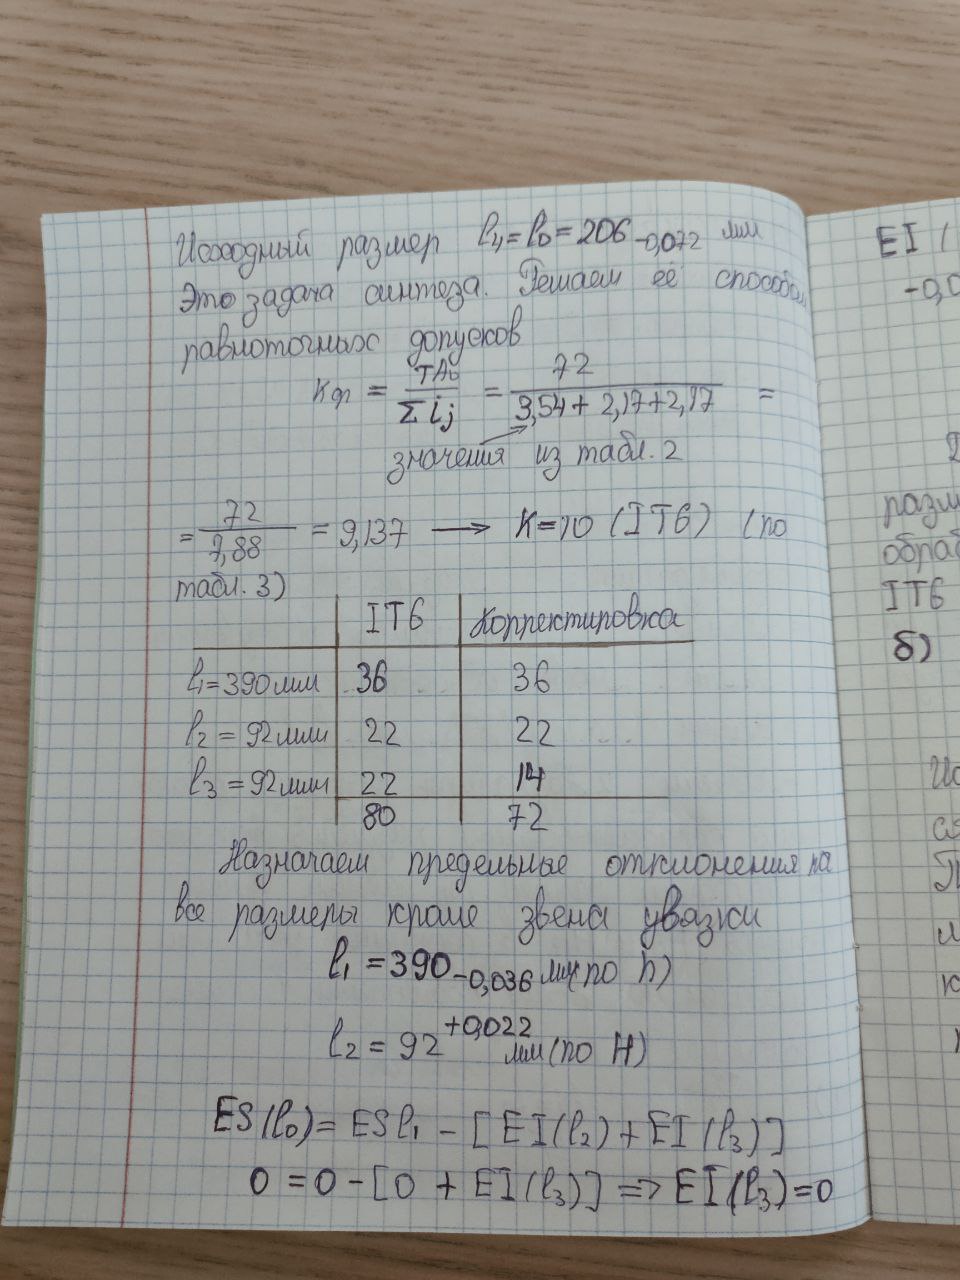 Исходный размер l₄=l₀=206₋₀,₀₇₂ мм
Это задача синтеза. Решаем её способом
равноточных допусков
Kφ = TA₀ / Σij = 72 / 3,54+2,17+2,17 =
значения из табл. 2
= 72 / 7,88 = 9,137 → K=10 (IT6) (по
табл. 3)
IT6 Корректировка
l₁=390мм 36 36
l₂=92мм 22 22
l₃=92мм 22 14
80 72
Назначаем предельные отклонения на
все размеры кроме звена увязки
l₁=390₋₀,₀₃₆ мм(по h)
l₂=92⁺⁰,⁰²² мм(по H)
ES(l₀)=ESl₁-[EI(l₂)+EI(l₃)]
0=0-[0+EI(l₃)] => EI(l₃)=0
EI (
-0,0
разм
обраб
IT6
б)